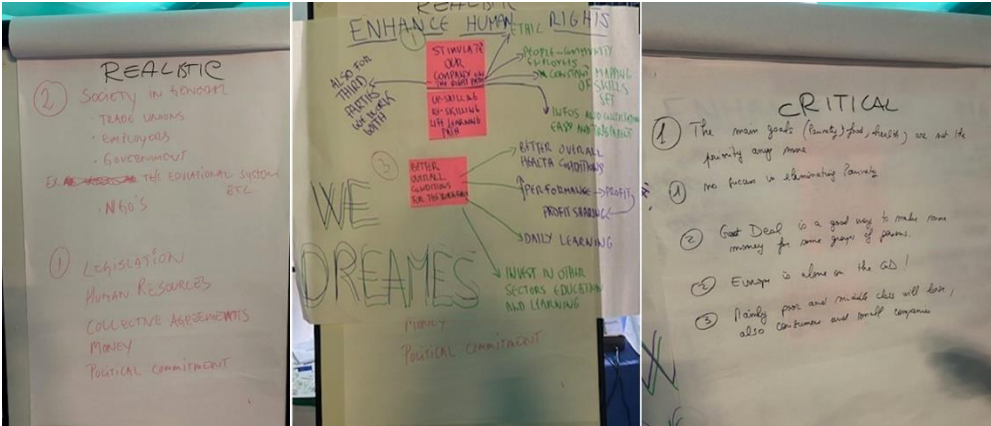 REALISTIC
2 SOCIETY IN GENERAL
TRADE UNIONS
• EMPLOYERS
• GOVERNMENT
Ex. THE EDUCATIONAL SYSTEM
ETC
• NGO'S
1 LEGISLATION
HUMAN RESOURCES
COLLECTIVE AGREEMENTS
MONEY
POLITICAL COMMITMENT
REALISTIC
ENHANCE HUMAN RIGHTS
1
STIMULATE
OUR
COMPANY ON
THE RIGHT PATH
UP-SKILLING
RE-SKILLING
LIFE LEARNING
PATH
ALSO FOR
THIRD
PARTIES
WE WORK
WITH
ETHIC
PEOPLE-COMMUNITY
EMPLOYEES
CONSTANT MAPPING
OF SKILLS
SET
INFOS AND
EASY AND TRANSPARENT
3
BETTER
OVERALL
CONDITIONS
FOR THE WORKERS
BETTER OVERALL
HEALTH CONDITIONS
PERFORMANCE → PROFIT
PROFIT SHARING
DAILY LEARNING
INVEST IN OTHER
SECTORS EDUCATION
AND LEARNING
WE
DREAMES
MONEY
POLITICAL COMMITMENT
CRITICAL
1 The main goals (Poverty, food, health) are not the
priority any more
1 no focus on eliminating Poverty
2 Deal is a good way to make some
money for some groups of persons.
2 Europe is alone on the GD!
3 Mainly poor and middle class will lose,
also consumers and small companies